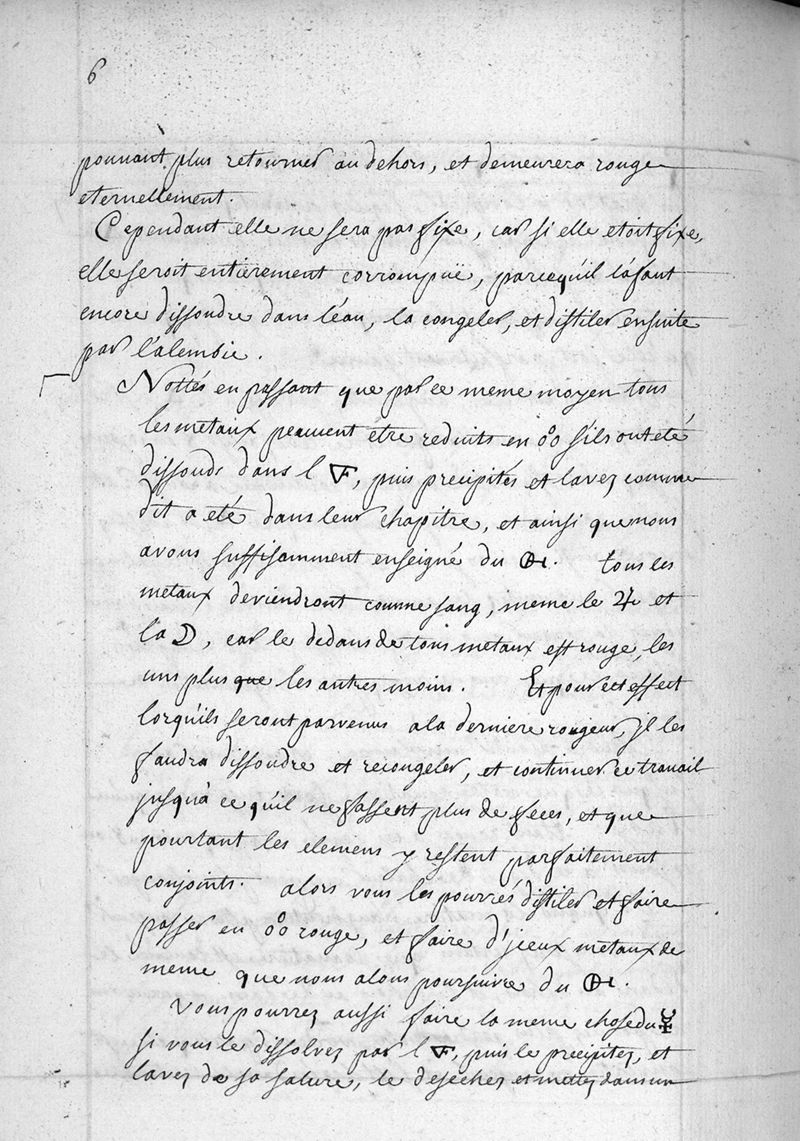 6
pouuant plus retourner au dehors, et demeurera rouge
eternellement.
Cependant elle ne sera pas fixe, car si elle etoit fixe,
elle seroit entièrement corrompuë, parcequ'il la faut
encore dissoudre dans l'éau, la congeler, et distiler ensuite
par l'alembic.
Nottés en passant que par ce meme moyen tous
les metaux peuuent étre reduits en o°o s'ils ont eté
dissouds dans l 🜅, puis precipités et lavez comme
dit a eté dans leur chapitre, et ainsi que nous
avons suffisamment enseigné du 🜨. tous les
metaux deviendront comme sang, meme le ♃ et
la ☽, car le dedans de tous metaux est rouge, les
uns plus que les autres moins. Et pour cet effect
lorqu'ils seront parvenus a la derniere rougeur, jl les
faudra dissoudre et recongeler, et continuer ce travail
jusqu'à ce qu'il ne fassent plus de feces, et que
pourtant les elemens y restent parfaitement
conjoints. alors vous les pourrés distiler et faire
passer en o°o rouge, et faire d'jceux metaux de
meme que nous alons poursuivre du
Vous pourrez aussi faire la meme chose du
si vous le dissolvez par l 🜅, puis le precipitez, et
lavez de sa salure, le deseches et mettez dans un